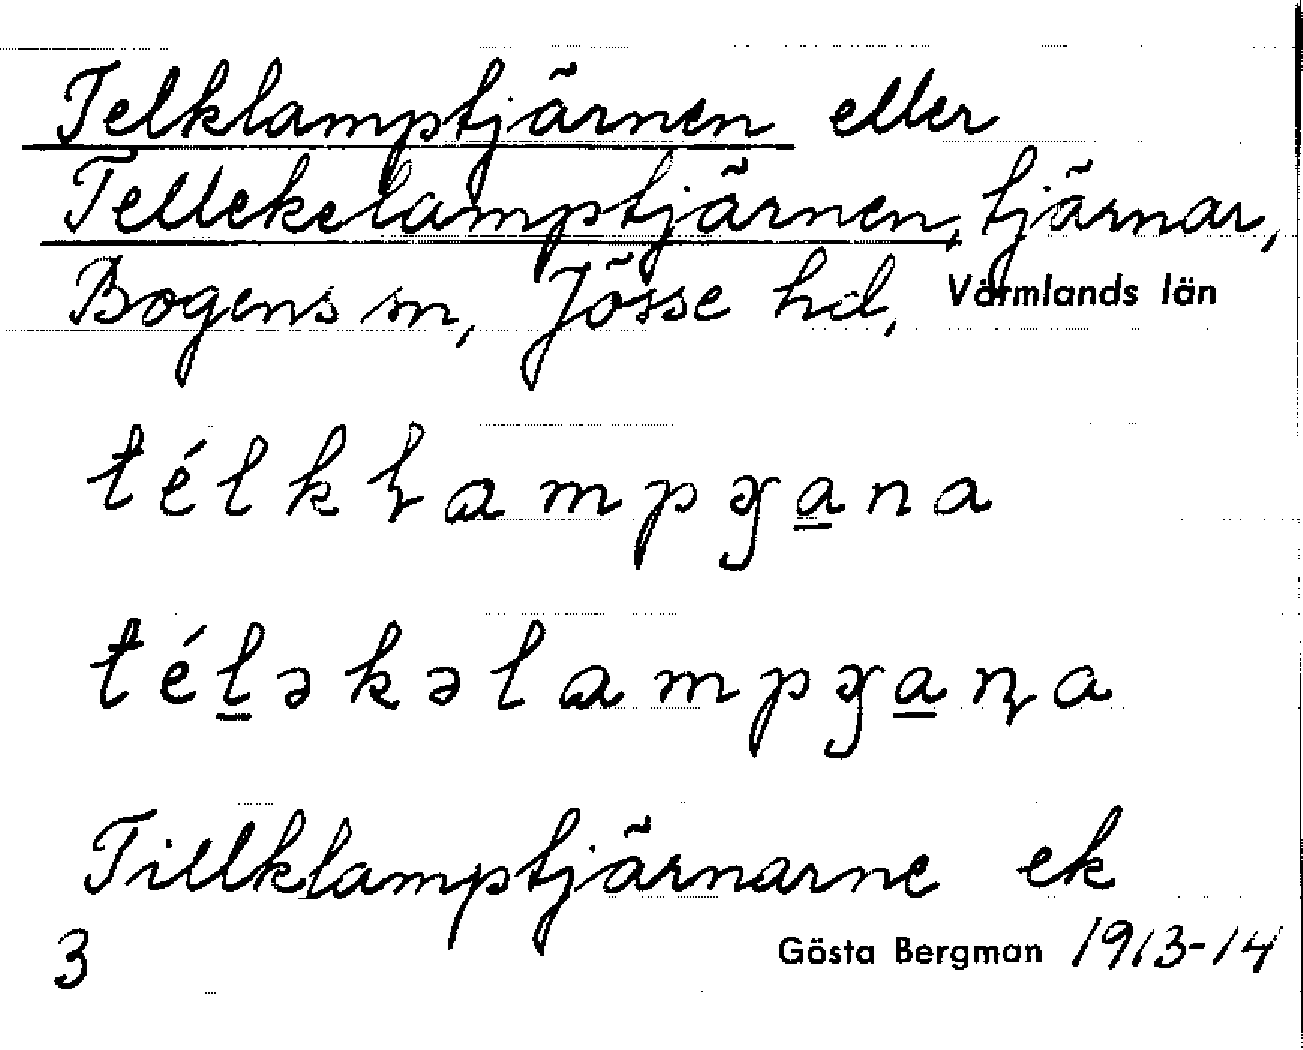 Telklamptjärnen eller
Tellekelamptjärnen, tjärnar,
Bogens sn, Jösse hd, Värmlands län
télkɭampɣa̲na
téḻəkəlampɣa̲ɳa
Tillklamptjärnarne ek
3 Gösta Bergman 1913-14